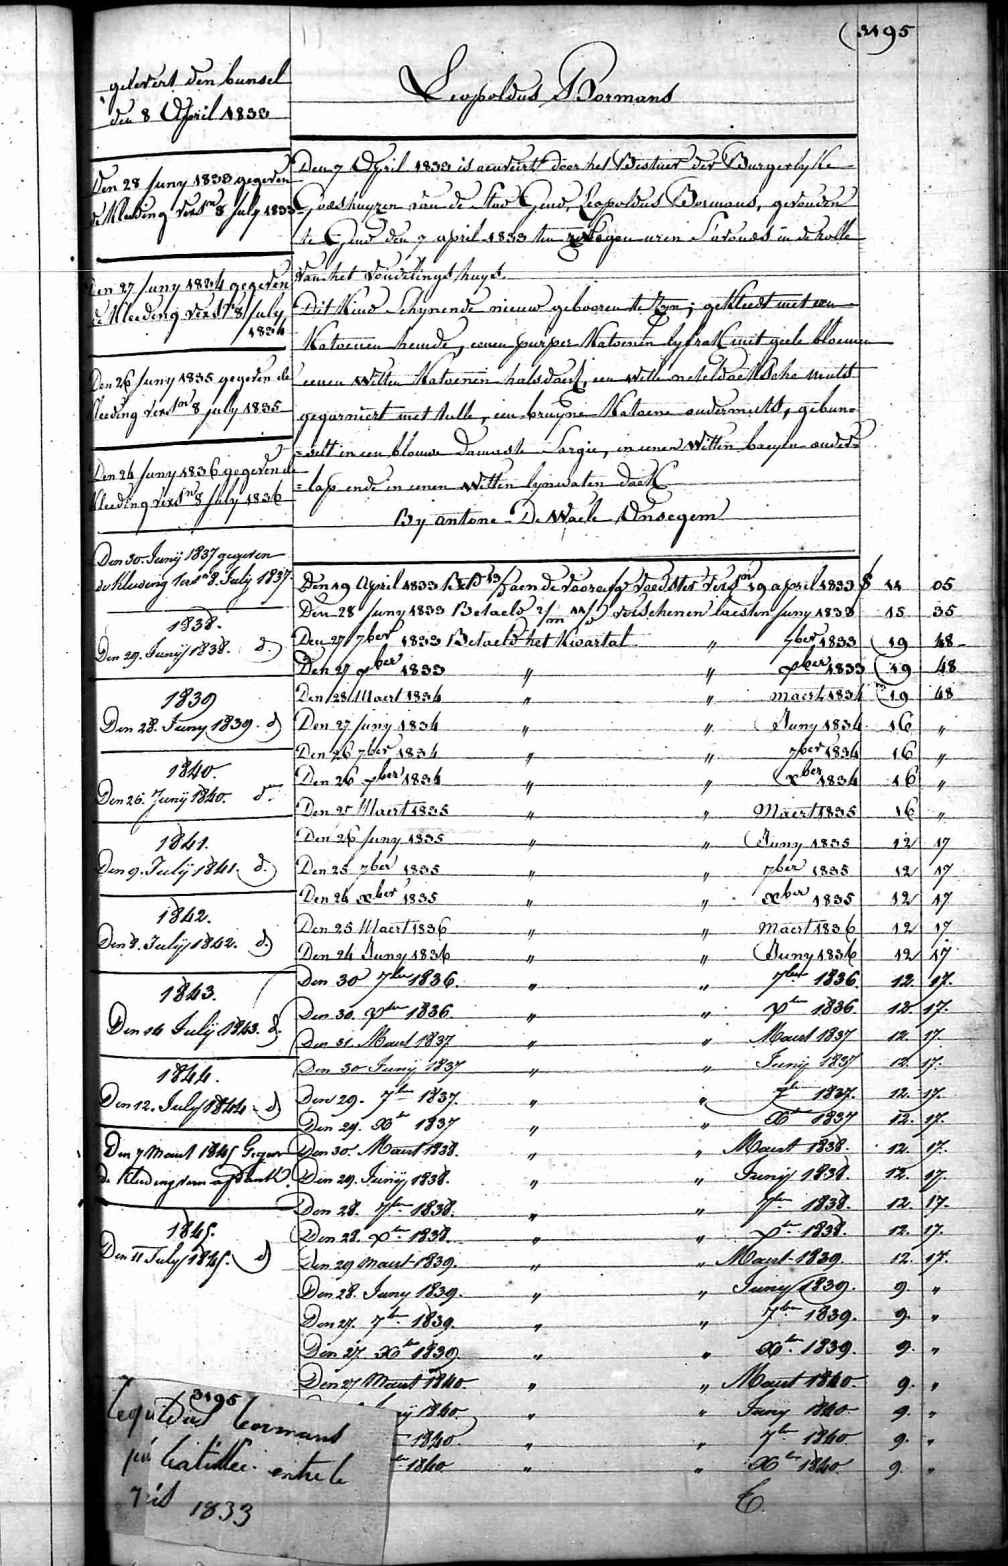 3195
gelevert den bunsel
den 8 April 1833
Leopoldus Bormans
Den 28 Juny 1833 gegeven
de Kleeding vers.n 8 July 1833
Den 27 Juny 1834 gegeven
de Kleeding vers.n 8 July
1834
Den 26 Juny 1835 gegeven de
kleeding vers.n 8 july 1835
Den 24 Juny 1836 gegeven de
kleeding vers.n 8 July 1836
Den 30. Junij 1837 gegeven
de kleeding vers.n 8. July 1837.
1838.
Den 29. Junij 1838. d.
1839
Den 28. Juny 1839. d
1840.
Den 26. Junij 1840. d.
1841.
Den 9. Julij 1841. d.
1842.
Den 8. Julij 1842. d
1843.
Den 14 Julij 1843. d.
1844.
Den 12. July 1844. d
Den 7 Maert 1845 Gegeven
de Kleeding
1845.
Den 11 July 1845. d
Den 7 April 1833 is door het Bestuer der Burgerlyke
Godshuyzen van de Stad Gend, Leopoldus Bormans, gevonden
te Gend den 7 april 1833 ten negen uren s'avonds in de rolle
van het vondelingshuys.
Dit Kind schynende nieuw gebooren te zyn; gekleedt met een
Katoenen hemde, eenen purper Katoenen lyfrok met geele bloemen
eenen witten Katoenen halsdoek, een witte neteldoeksche muts
gegarniert met tulle, een bruyne Katoene ondermuts, gebun=
=delt in een blouwe damaste Sargie, in eenen witten baeyen onder=
=lap ende in eenen witten lynwaten doek
By antone De Waele Onsegem
Den 19 April 1833 aen de voorige voedster vers.n 19 april 1833 11 05
Den 28 Juny 1833 Betaeld verschenen laesten juny 1833 15 35
Den 27 7ber 1833 Betaeld het Kwartal " 7ber 1833 19 48
Den 27 xber 1833 " " xber 1833 19 48
Den 28 Maert 1834 " " maert 1834 19 48
Den 27 Juny 1834 " " Juny 1834 16 "
Den 26 7ber 1834 " " 7ber 1834 16 "
Den 26 xber 1834 " " xber 1834 16 "
Den 27 Maert 1835 " " Maert 1835 16 "
Den 26 Juny 1835 " " Juny 1835 12 17
Den 25 7ber 1835 " " 7ber 1835 12 17
Den 24 xber 1835 " " xber 1835 12 17
Den 25 Maert 1836 " " Maert 1836 12 17
Den 24 Juny 1836 " " Juny 1836 12 17
Den 30 7ber 1836. " " 7ber 1836. 12. 17.
Den 30. xber 1836. " " xber 1836. 12. 17.
Den 31. Maert 1837 " " Maert 1837 12. 17.
Den 30 Junij 1837 " " Junij 1837 12. 17.
Den 29. 7ber 1837. " " 7ber 1837. 12. 17.
Den 29. xber 1837 " " xber 1837 12. 17.
Den 30. Maert 1838. " " Maert 1838. 12. 17.
Den 29. Junij 1838. " " Junij 1838. 12. 17.
Den 28. 7ber 1838. " " 7ber 1838. 12. 17.
Den 28. xber 1838. " " xber 1838. 12. 17.
Den 29 maert 1839. " " Maert 1839. 12. 17.
Den 28. Juny 1839. " " Juny 1839. 9. "
Den 27. 7ber 1839. " " 7ber 1839. 9. "
Den 27. xber 1839 " " xber 1839. 9. "
Den 27 Maert 1840. " " Maert 1840. 9. "
1840. " " Juny 1840. 9. "
1840. " " 7ber 1840. 9. "
1840. " " xber 1840. 9. "
3195
Bormans
entre le
1833